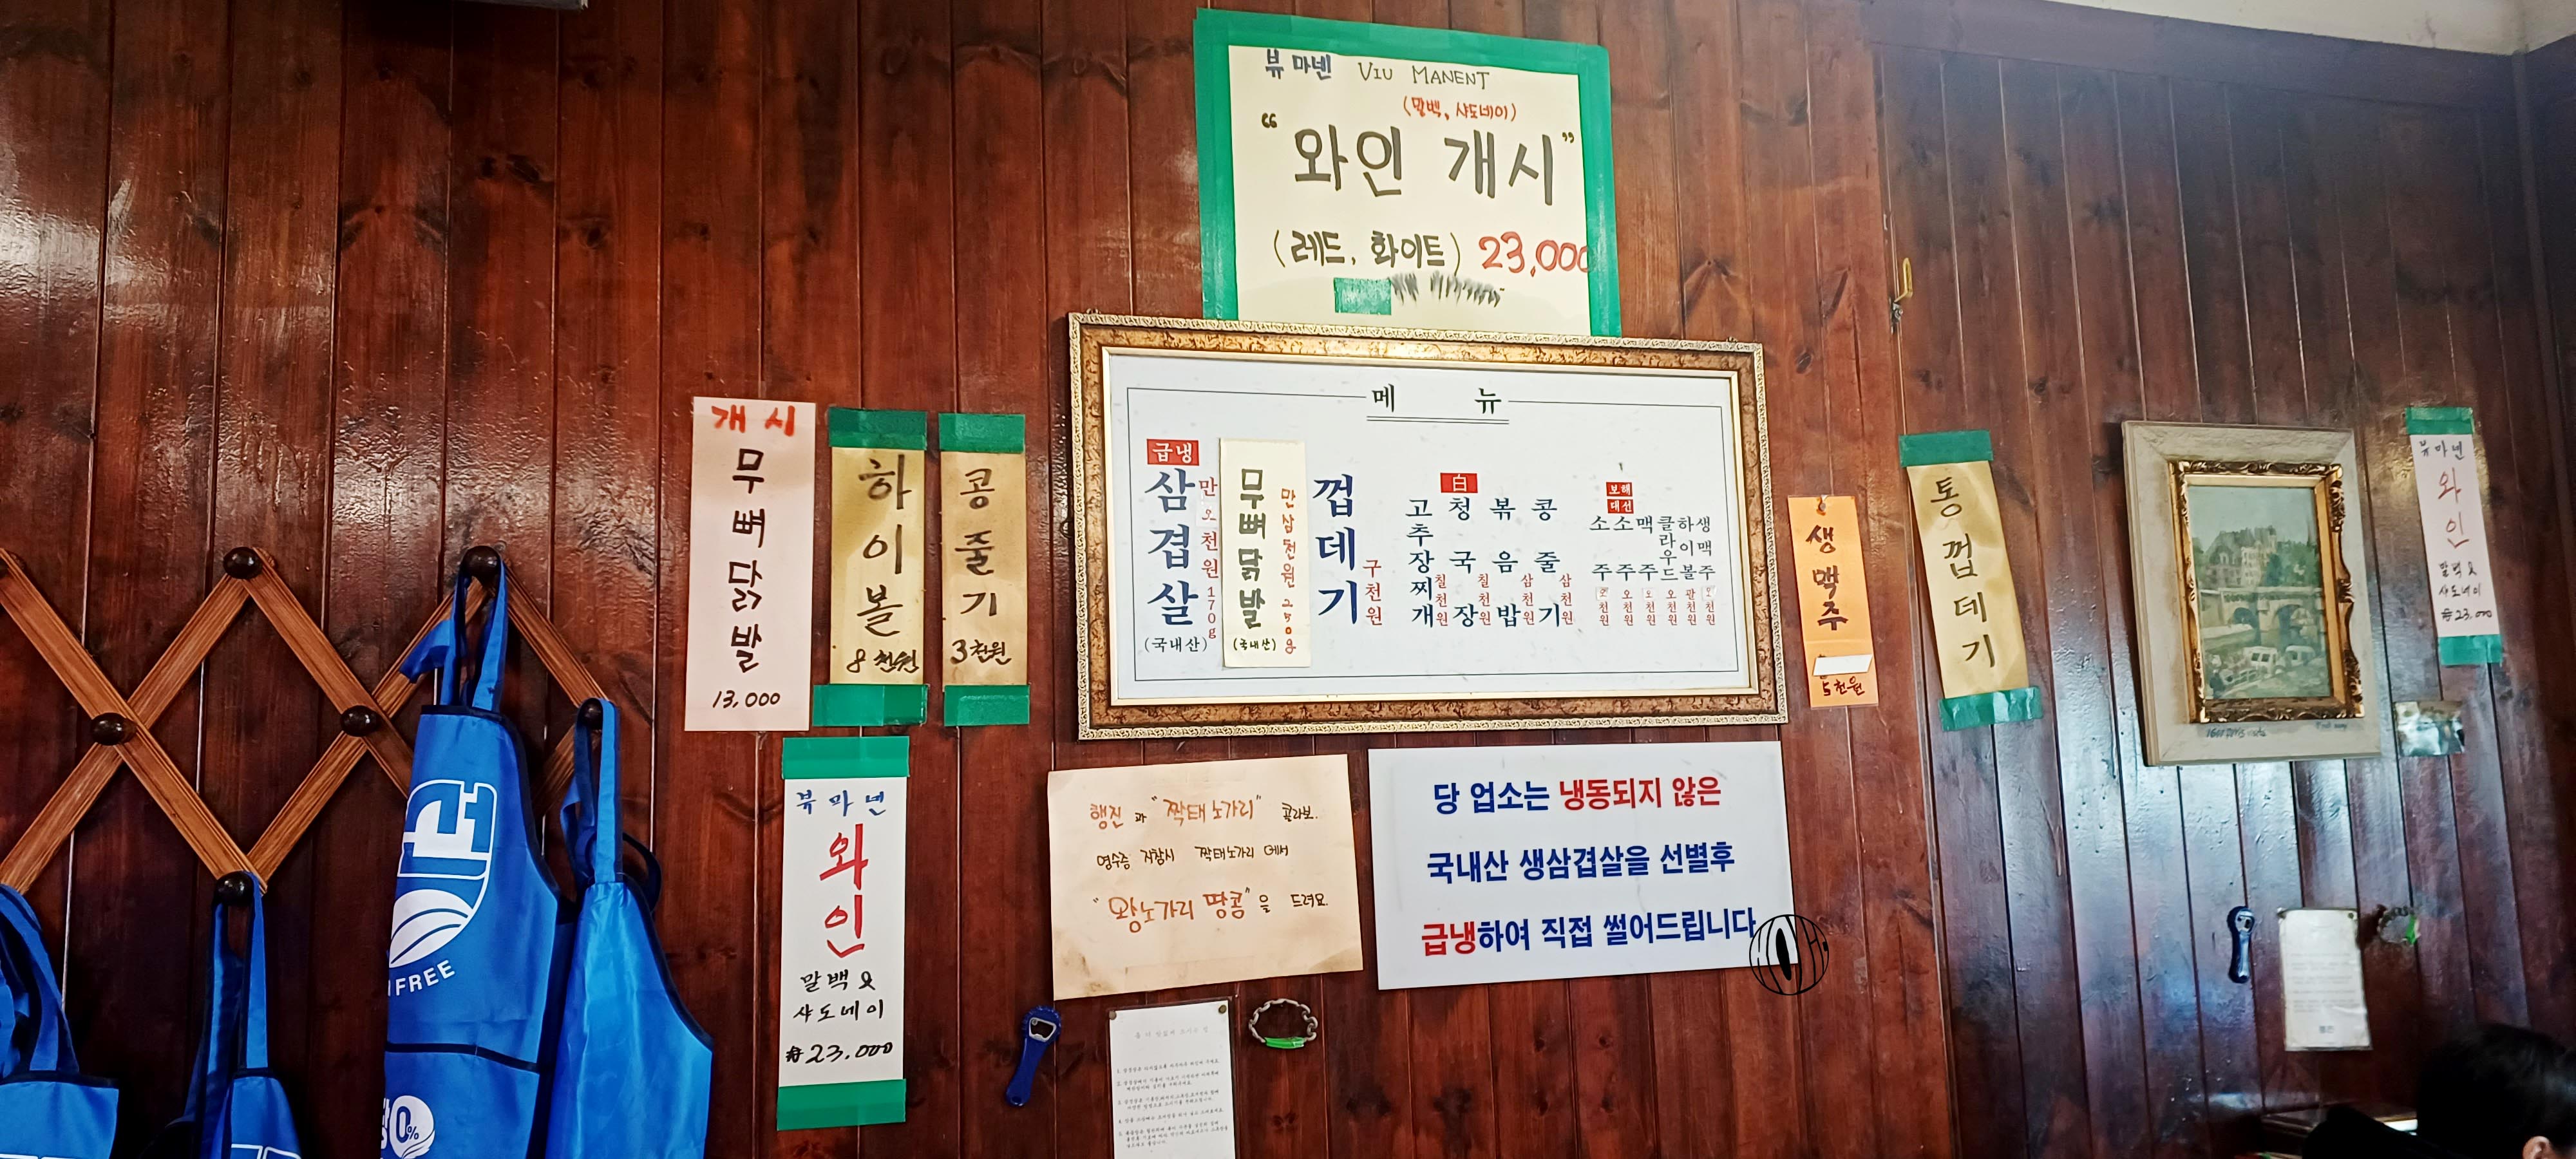 뷰 마넨 VIU MANENT
(말벡, 샤도네이)
“와인 개시”
(레드, 화이트) 23,000
개시
무뼈닭발
13,000
하이볼
8천원
콩줄기
3천원
메 뉴
급냉
삼겹살
만오천원 170g
(국내산)
무뼈닭발
만삼천원 250g
(국내산)
껍데기
구천원
고추장찌개
칠천원
白
청국장
칠천원
볶음밥
삼천원
콩줄기
삼천원
보해
소주
오천원
대선
소주
오천원
맥주
오천원
클라우드
오천원
하이볼
팔천원
생맥주
오천원
생맥주
5천원
통껍데기
뷰마넨
와인
말벡 &
샤도네이
₩23,000
뷰마넨
와인
말백 &
샤도네이
₩23,000
행진과 "짝태노가리" 콜라보.
영수증 지참시 짝태노가리에서
"왕노가리 땅콩"을 드려요.
당 업소는 냉동되지 않은
국내산 생삼겹살을 선별후
급냉하여 직접 썰어드립니다
FREE
0%